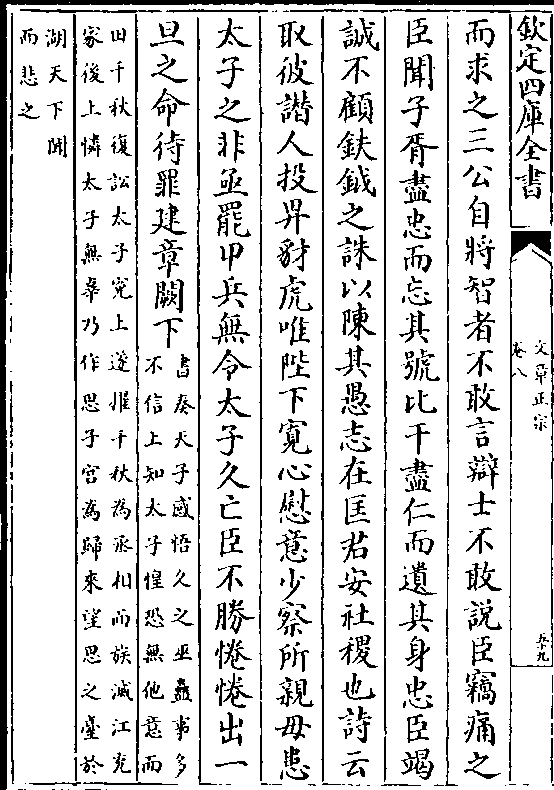 欽定四庫全書
文章正宗
卷八
五十九
而求之三公自將智者不敢言辯士不敢說臣竊痛之
臣聞子胥盡忠而忘其號比干盡仁而遺其身忠臣竭
誠不顧鈇鉞之誅以陳其愚志在匡君安社稷也詩云
取彼譖人投畀豺虎唯陛下寛心慰意少察所親毋患
太子之非亟罷甲兵無令太子久亡臣不勝惓惓出一
旦之命待罪建章闕下
書奏天子感悟久之巫蠱事多
不信上知太子惶恐無他意而
田千秋復訟太子寃上遂擢千秋為丞相而族滅江充
家後上憐太子無辜乃作思子宫為歸來望思之臺於
湖天下聞
而悲之